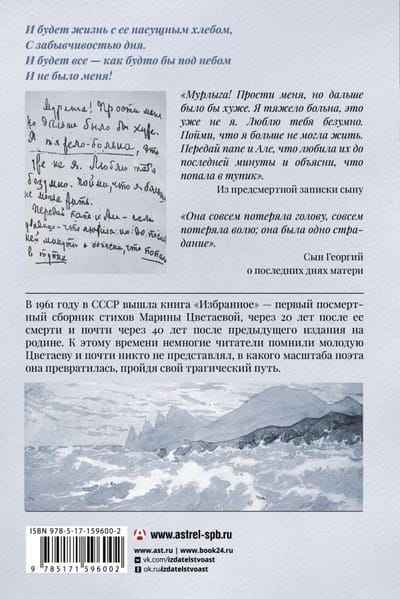 И будет жизнь с ее насущным хлебом,
С забывчивостью дня.
И будет все — как будто бы под небом
И не было меня!
Мурлыга! Прости меня
но дальше было бы хуже.
Я тяжело-больна, это
уже не я. Люблю тебя
безумно. Пойми, что я больше
не могла жить.
Передай папе и Але — если
увидишь — что любила их до послед
ней минуты и объясни, что попала
в тупик
«Мурлыга! Прости меня, но дальше
было бы хуже. Я тяжело больна, это
уже не я. Люблю тебя безумно.
Пойми, что я больше не могла жить.
Передай папе и Але, что любила их до
последней минуты и объясни, что
попала в тупик».
Из предсмертной записки сыну
«Она совсем потеряла голову, совсем
потеряла волю; она была одно стра-
дание».
Сын Георгий
о последних днях матери
В 1961 году в СССР вышла книга «Избранное» — первый посмерт-
ный сборник стихов Марины Цветаевой, через 20 лет после ее
смерти и почти через 40 лет после предыдущего издания на
родине. К этому времени немногие читатели помнили молодую
Цветаеву и почти никто не представлял, в какого масштаба поэта
она превратилась, пройдя свой трагический путь.
ISBN 978-5-17-159600-2
9 785171 596002
www.astrel-spb.ru
www.ast.ru | www.book24.ru
vk.com/izdatelstvoast
ok.ru/izdatelstvoast